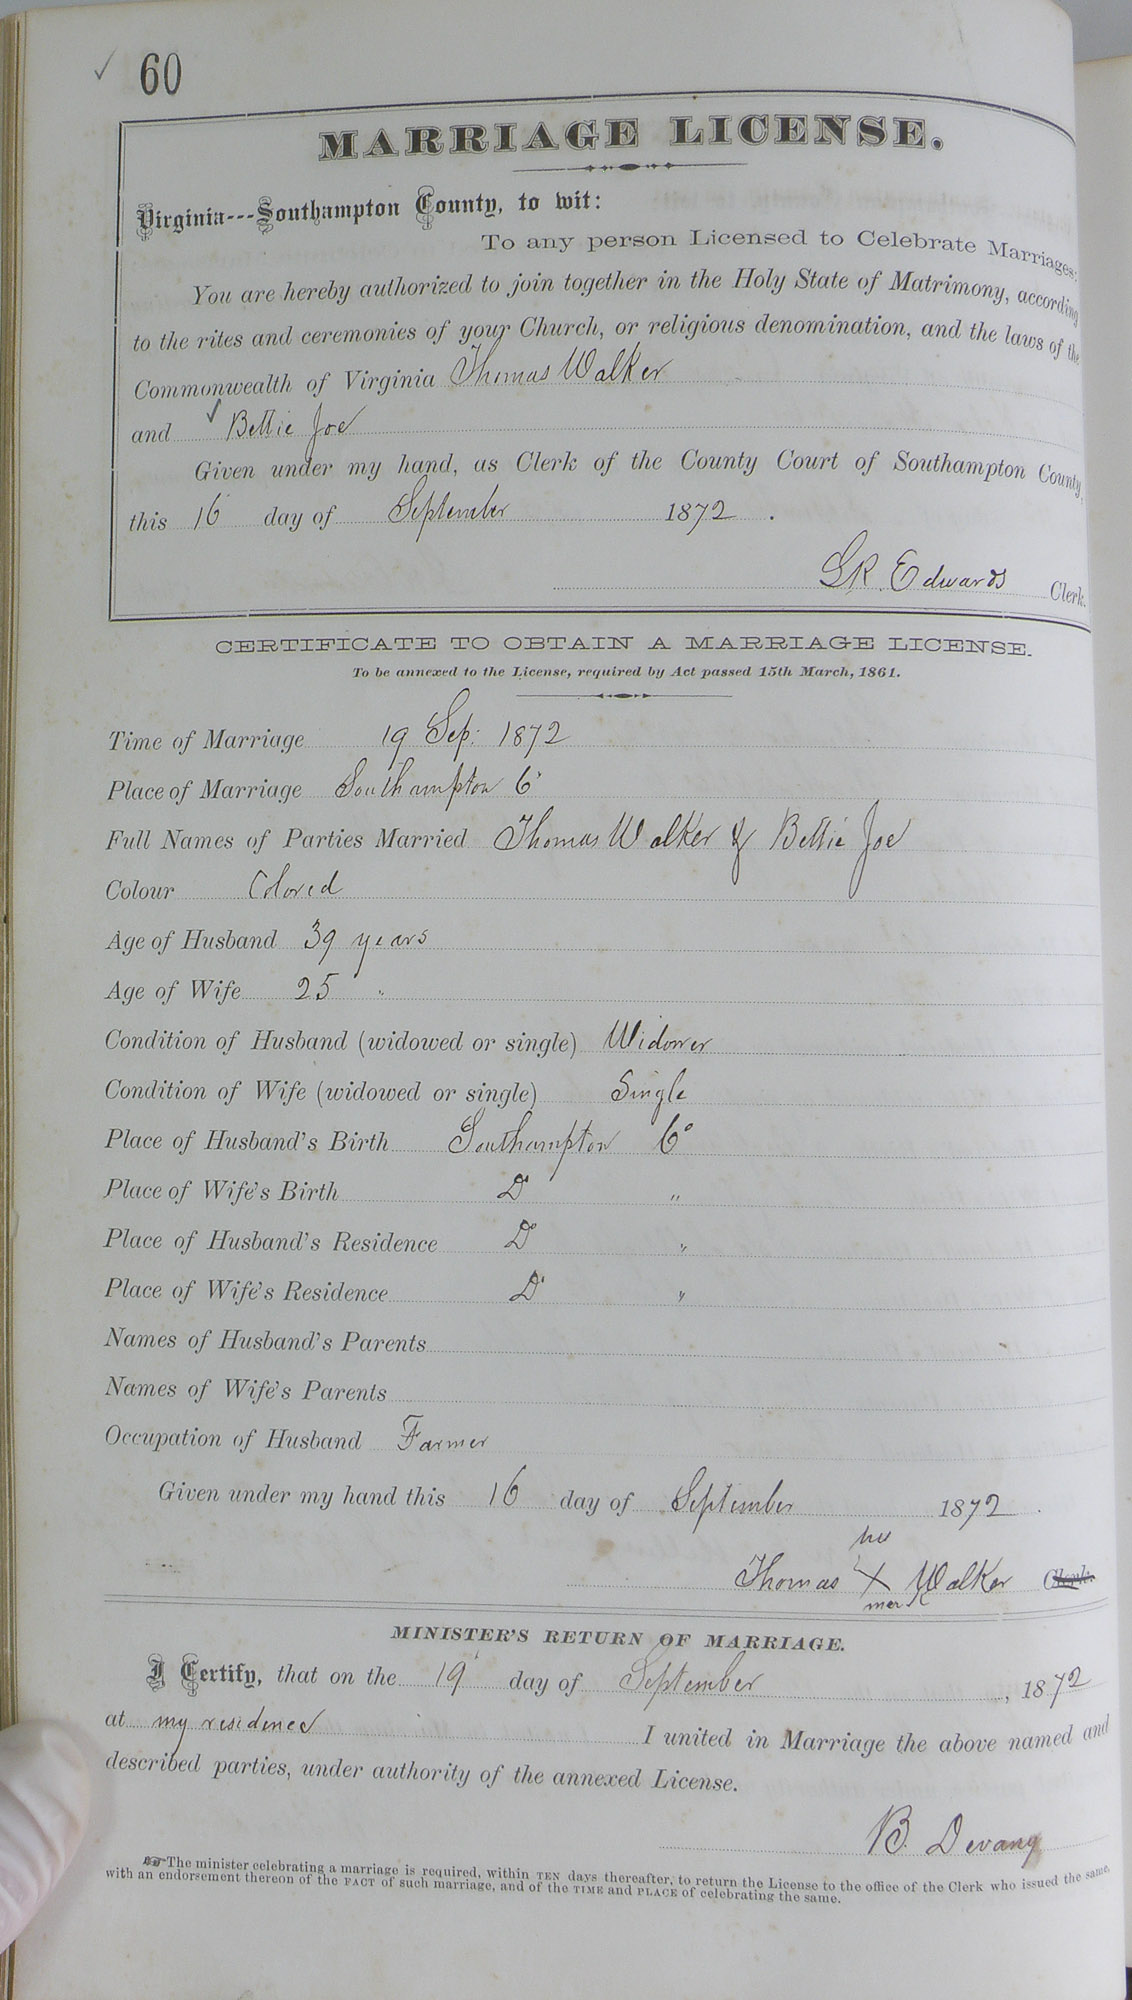 ✓ 60
MARRIAGE LICENSE.
Virginia---Southampton County, to wit:
To any person Licensed to Celebrate Marriages:
You are hereby authorized to join together in the Holy State of Matrimony, according
to the rites and ceremonies of your Church, or religious denomination, and the laws of the
Commonwealth of Virginia Thomas Walker
and ✓ Bettie Joe
Given under my hand, as Clerk of the County Court of Southampton County,
this 16 day of September 1872.
LR Edwards Clerk.
CERTIFICATE TO OBTAIN A MARRIAGE LICENSE.
To be annexed to the License, required by Act passed 15th March, 1861.
Time of Marriage 19 Sep: 1872
Place of Marriage Southampton Co
Full Names of Parties Married Thomas Walker & Bettie Joe
Colour Colored
Age of Husband 39 years
Age of Wife 25 "
Condition of Husband (widowed or single) Widower
Condition of Wife (widowed or single) Single
Place of Husband's Birth Southampton Co
Place of Wife's Birth Do "
Place of Husband's Residence Do "
Place of Wife's Residence Do "
Names of Husband's Parents
Names of Wife's Parents
Occupation of Husband Farmer
Given under my hand this 16 day of September 1872.
his
Thomas X Walker Clerk.
mark
MINISTER'S RETURN OF MARRIAGE.
I Certify, that on the 19 day of September, 1872
at my residence I united in Marriage the above named and
described parties, under authority of the annexed License.
B. Devany
The minister celebrating a marriage is required, within TEN days thereafter, to return the License to the office of the Clerk who issued the same,
with an endorsement thereon of the FACT of such marriage, and of the TIME and PLACE of celebrating the same.